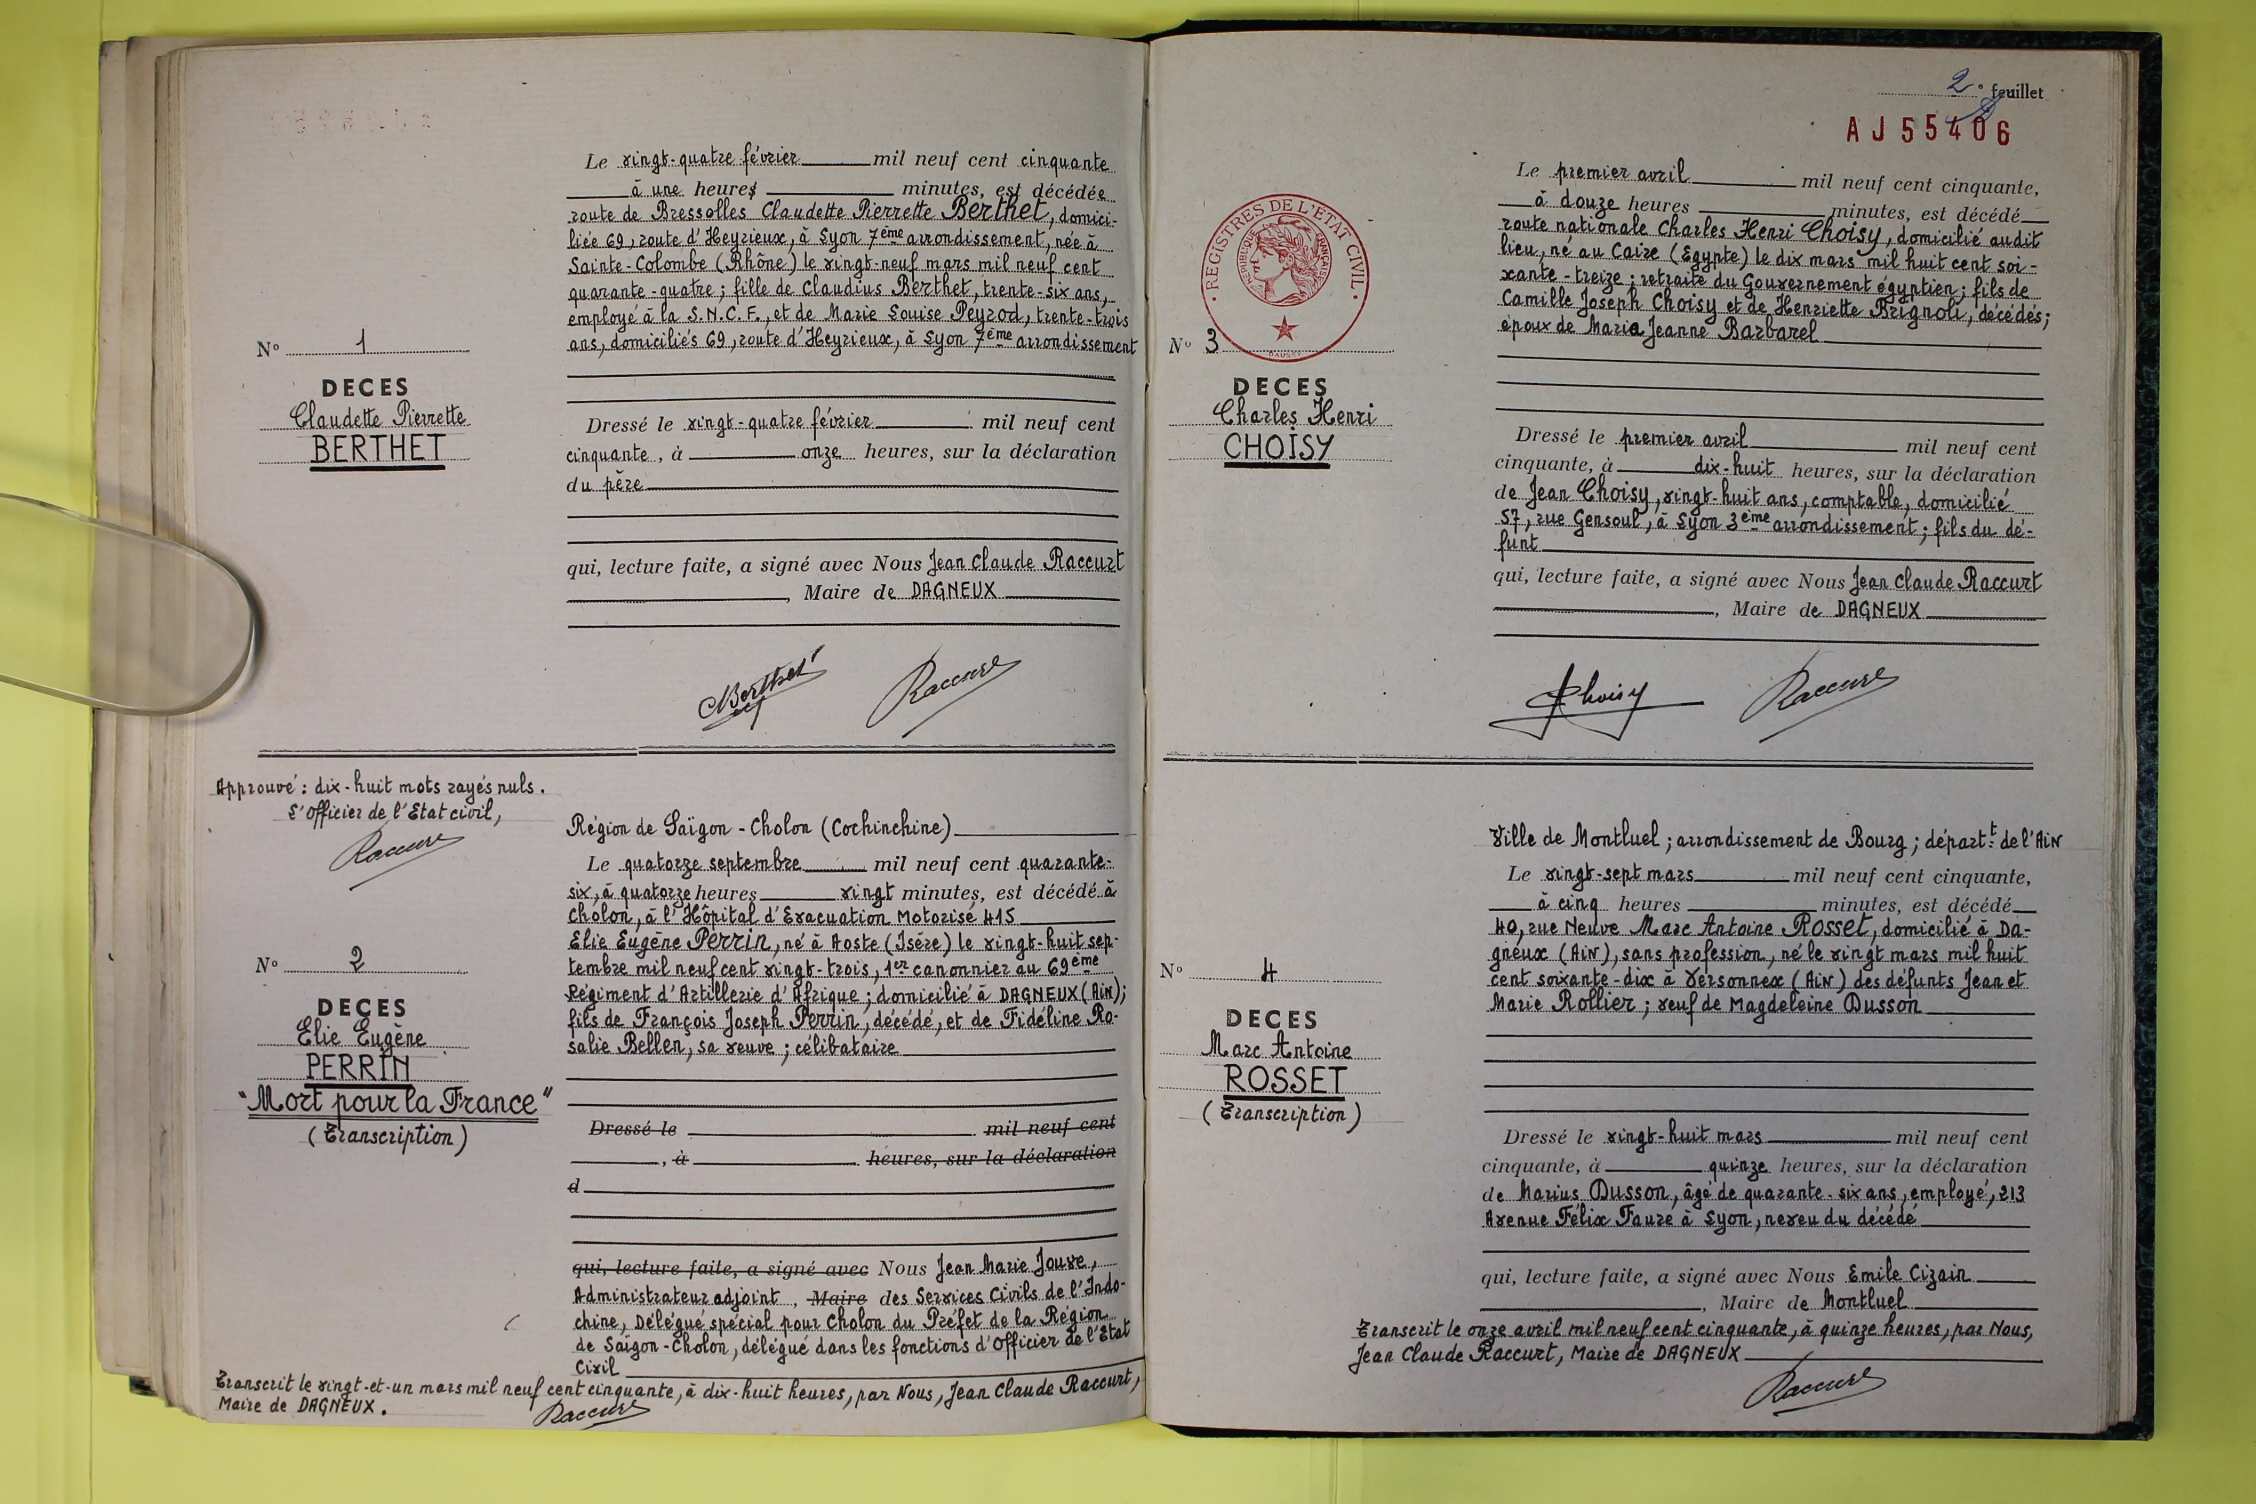 Le vingt-quatre février mil neuf cent cinquante
à une heures minutes, est décédée
route de Bressolles Claudette Pierrette Berthet, domici-
liée 69, route d'Heyrieux, à Lyon 7ème arrondissement, née à
Sainte-Colombe (Rhône) le vingt-neuf mars mil neuf cent
quarante-quatre; fille de Claudius Berthet, trente-six ans,
employé à la S.N.C.F., et de Marie Louise Peyrod, trente-trois
ans, domiciliés 69, route d'Heyrieux, à Lyon 7ème arrondissement
N° 1
DECES
Claudette Pierrette
BERTHET
Dressé le vingt-quatre février mil neuf cent
cinquante, à onze heures, sur la déclaration
du père
qui, lecture faite, a signé avec Nous Jean Claude Raccurt
, Maire de DAGNEUX
Berthet Raccurt
Approuvé : dix-huit mots rayés nuls.
L'Officier de l'Etat civil,
Raccurt
Région de Saïgon-Cholon (Cochinchine)
Le quatorze septembre mil neuf cent quarante-
six, à quatorze heures vingt minutes, est décédé à
Cholon, à l'Hôpital d'Evacuation Motorisé 415
Elie Eugène Perrin, né à Aoste (Isère) le vingt-huit sep-
tembre mil neuf cent vingt-trois, 1er canonnier au 69ème
Régiment d'Artillerie d'Afrique; domicilié à DAGNEUX (Ain);
fils de François Joseph Perrin, décédé, et de Fidéline Ro-
salie Bellen, sa veuve; célibataire
N° 2
DECES
Elie Eugène
PERRIN
"Mort pour la France"
(Transcription)
Dressé le mil neuf cent
, à heures, sur la déclaration
d
qui, lecture faite, a signé avec Nous Jean Marie Jouve,
Administrateur adjoint, Maire des Services Civils de l'Indo-
chine, Délégué spécial pour Cholon du Préfet de la Région
de Saïgon-Cholon, délégué dans les fonctions d'Officier de l'Etat
Civil
Transcrit le vingt-et-un mars mil neuf cent cinquante, à dix-huit heures, par Nous, Jean Claude Raccurt,
Maire de DAGNEUX.
Raccurt
2e feuillet
AJ55406
REGISTRES DE L'ETAT CIVIL
REPUBLIQUE FRANÇAISE
Le premier avril mil neuf cent cinquante,
à douze heures minutes, est décédé
route nationale Charles Henri Choisy, domicilié audit
lieu, né au Caire (Egypte) le dix mars mil huit cent soi-
xante-treize; retraité du Gouvernement égyptien; fils de
Camille Joseph Choisy et de Henriette Brignoli, décédés;
époux de Maria Jeanne Barbarel
N° 3
DECES
Charles Henri
CHOISY
Dressé le premier avril mil neuf cent
cinquante, à dix-huit heures, sur la déclaration
de Jean Choisy, vingt-huit ans, comptable, domicilié
57, rue Gensoul, à Lyon 3ème arrondissement; fils du dé-
funt
qui, lecture faite, a signé avec Nous Jean Claude Raccurt
, Maire de DAGNEUX
Choisy Raccurt
Ville de Montluel; arrondissement de Bourg; départ.t de l'Ain
Le vingt-sept mars mil neuf cent cinquante,
à cinq heures minutes, est décédé
40, rue Neuve Marc Antoine Rosset, domicilié à Da-
gneux (Ain), sans profession, né le vingt mars mil huit
cent soixante-dix à Versonnex (Ain) des défunts Jean et
Marie Rollier; veuf de Magdeleine Dusson
N° 4
DECES
Marc Antoine
ROSSET
(Transcription)
Dressé le vingt-huit mars mil neuf cent
cinquante, à quinze heures, sur la déclaration
de Marius Dusson, âgé de quarante-six ans, employé, 213
Avenue Félix Faure à Lyon, neveu du décédé
qui, lecture faite, a signé avec Nous Emile Cizain
, Maire de Montluel
Transcrit le onze avril mil neuf cent cinquante, à quinze heures, par Nous,
Jean Claude Raccurt, Maire de DAGNEUX
Raccurt